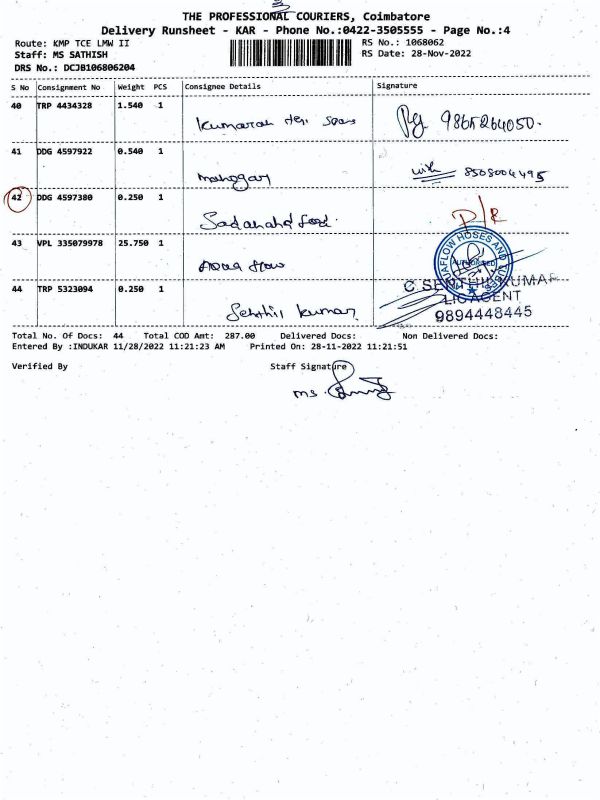 3
THE PROFESSIONAL COURIERS, Coimbatore
Delivery Runsheet - KAR - Phone No.:0422-3505555 - Page No.:4
Route: KMP TCE LMW II
Staff: MS SATHISH
DRS No.: DCJB106806204
RS No.: 1068062
RS Date: 28-Nov-2022
S No Consignment No Weight PCS Consignee Details Signature
40 TRP 4434328 1.540 1
Kumaran
41 DDG 4597922 0.540 1
8508004495
42 DDG 4597380 0.250 1
D/R
43 VPL 335079978 25.750 1
Aqua flow
HOSES AND
AUTHORISED
44 TRP 5323094 0.250 1
Senthil Kumar
C SENTHIL KUMAR
LIC AGENT
9894448445
Total No. Of Docs: 44 Total COD Amt: 287.00 Delivered Docs: Non Delivered Docs:
Entered By :INDUKAR 11/28/2022 11:21:23 AM Printed On: 28-11-2022 11:21:51
Verified By Staff Signature
MS.